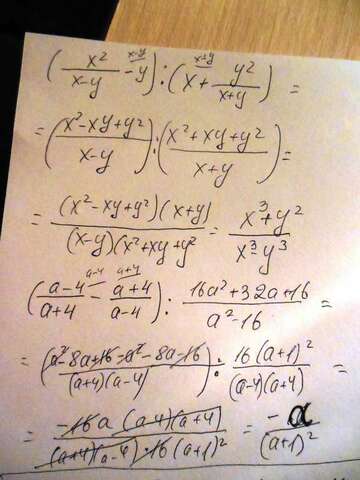 (x²/(x-y) - y^(x-y)) : (x^(x+y) + y²/(x+y)) =
= ((x²-xy+y²)/(x-y)) : ((x²+xy+y²)/(x+y)) =
= (x²-xy+y²)(x+y)/((x-y)(x²+xy+y²) = (x³+y²)/(x³-y³)
((a-4)^(a-4)/(a+4) - (a+4)^(a+4)/(a-4)) : (16a²+32a+16)/(a²-16) =
= ((a²-8a+16-a²-8a-16)/((a+4)(a-4))) : 16(a+1)²/((a-4)(a+4)) =
= -16a(a-4)(a+4)/((a+4)(a-4)·16(a+1)²) = -a/(a+1)²